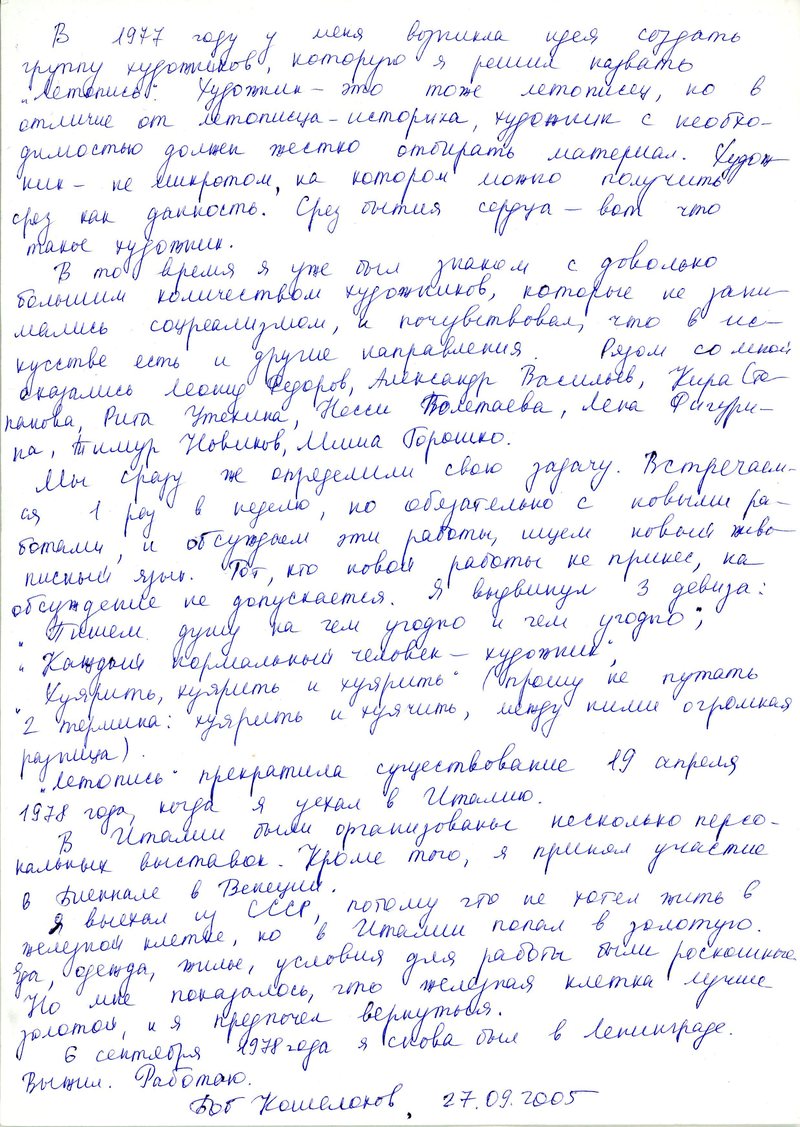 В 1977 году у меня возникла идея создать
группу художников, которую я решил назвать
„Летопись“. Художник – это тоже летописец, но в
отличие от летописца-историка, художник с необхо-
димостью должен жестко отбирать материал. Худож-
ник – не микротом, на котором можно получить
срез как данность. Срез бытия сердца – вот что
такое художник.
В то время я уже был знаком с довольно
большим количеством художников, которые не зани-
мались соцреализмом, и почувствовал, что в ис-
кусстве есть и другие направления. Рядом со мной
оказались Леонид Федоров, Александр Васильев, Кира Сте-
панова, Рита Утекина, Несси Полетаева, Лена Фигури-
на, Тимур Новиков, Миша Горошко.
Мы сразу же определили свою задачу. Встречаем-
ся 1 раз в неделю, но обязательно с новыми ра-
ботами, и обсуждаем эти работы, ищем новый живо-
писный язык. Тот, кто новой работы не принес, на
обсуждение не допускается. Я выдвинул 3 девиза:
„Пишем душу на чем угодно и чем угодно“;
„Каждый нормальный человек – художник“,
„Хуярить, хуярить и хуярить“ (прошу не путать
2 термина: хуярить и хуячить, между ними огромная
разница).
„Летопись“ прекратила существование 19 апреля
1978 года, когда я уехал в Италию.
В Италии были организованы несколько персо-
нальных выставок. Кроме того, я принял участие
в Биеннале в Венеции.
Я выехал из СССР, потому что не хотел жить в
железной клетке, но в Италии попал в золотую.
Еда, одежда, жилье, условия для работы были роскошные.
Но мне показалось, что железная клетка лучше
золотой, и я предпочел вернуться.
6 сентября 1978 года я снова был в Ленинграде.
Выжил. Работаю.
Боб Кошелохов, 27.09.2005